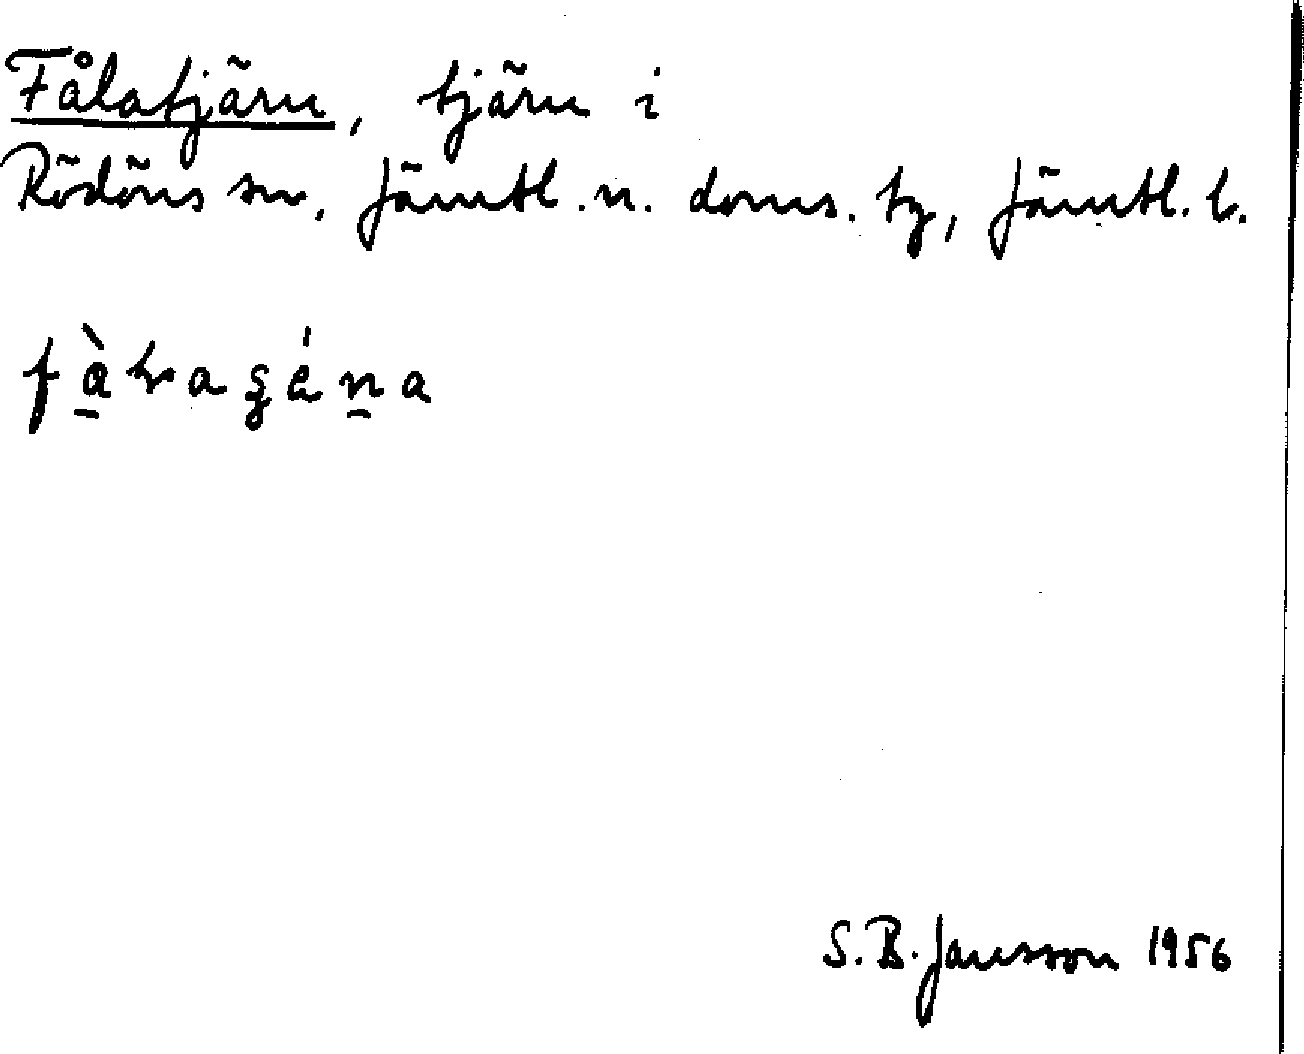 Fålatjärn, tjärn i
Rödöns sn, Jämtl. n. doms. tg, Jämtl. l.
S. B. Jansson 1956